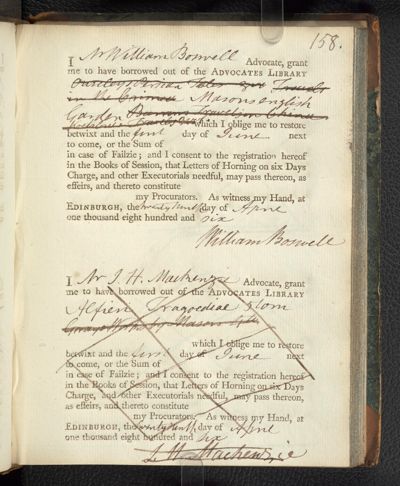 158.
I Mr William Boswell Advocate, grant
me to have borrowed out of the ADVOCATES LIBRARY
Ouseleys Persian Tales Travels
in the Crimea Masons english
Garden Barrows Travels in China
which I oblige me to restore
betwixt and the first day of June next
to come, or the Sum of
in case of Failzie; and I consent to the registration hereof
in the Books of Session, that Letters of Horning on six Days
Charge, and other Executorials needful, may pass thereon, as
effeirs, and thereto constitute
my Procurators. As witness my Hand, at
EDINBURGH, the twenty ninth day of April
one thousand eight hundred and six
William Boswell
I Mr J. H. Mackenzie Advocate, grant
me to have borrowed out of the ADVOCATES LIBRARY
Alfieri Tragoediae tom
Grays Works by Mason
which I oblige me to restore
betwixt and the first day of June next
to come, or the Sum of
in case of Failzie; and I consent to the registration hereof
in the Books of Session, that Letters of Horning on six Days
Charge, and other Executorials needful, may pass thereon,
as effeirs, and thereto constitute
my Procurators. As witness my Hand, at
EDINBURGH, the twenty ninth day of April
one thousand eight hundred and six
J. H. Mackenzie